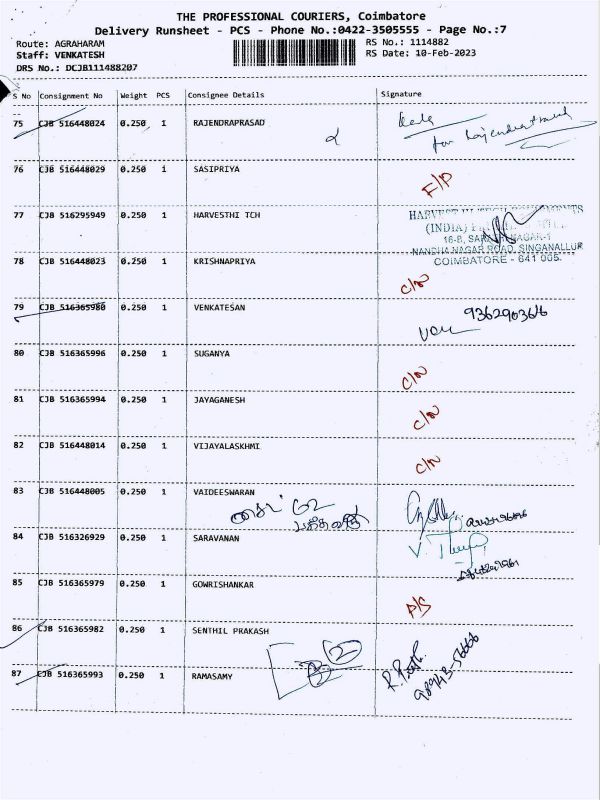 THE PROFESSIONAL COURIERS, Coimbatore
Delivery Runsheet - PCS - Phone No.:0422-3505555 - Page No.:7
Route: AGRAHARAM RS No.: 1114882
Staff: VENKATESH RS Date: 10-Feb-2023
DRS No.: DCJB111488207
S No Consignment No Weight PCS Consignee Details Signature
75 CJB 516448024 0.250 1 RAJENDRAPRASAD
for Rajendra
76 CJB 516448029 0.250 1 SASIPRIYA F/P
77 CJB 516295949 0.250 1 HARVESTHI TCH
HARVEST HI-TECH
(INDIA)
NANDHA NAGAR ROAD, SINGANALLUR
COIMBATORE - 641 005.
78 CJB 516448023 0.250 1 KRISHNAPRIYA C/N
79 CJB 516365980 0.250 1 VENKATESAN
80 CJB 516365996 0.250 1 SUGANYA C/N
81 CJB 516365994 0.250 1 JAYAGANESH C/N
82 CJB 516448014 0.250 1 VIJAYALASKHMI C/N
83 CJB 516448005 0.250 1 VAIDEESWARAN
84 CJB 516326929 0.250 1 SARAVANAN
85 CJB 516365979 0.250 1 GOWRISHANKAR P/S
86 CJB 516365982 0.250 1 SENTHIL PRAKASH
87 CJB 516365993 0.250 1 RAMASAMY
98943-56666